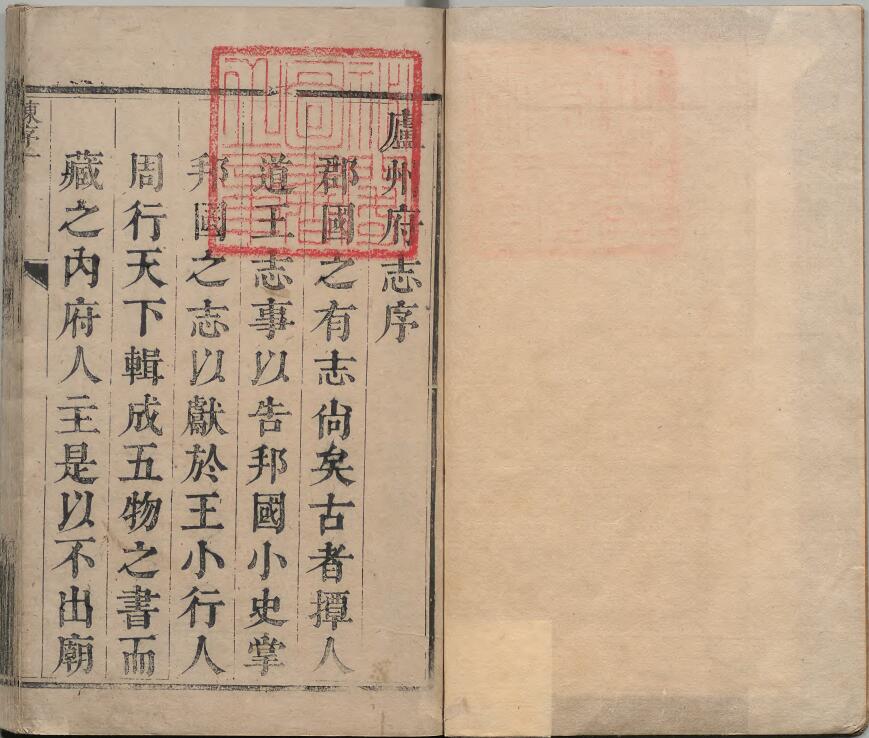 廬州府志序
郡國之有志尙矣古者撢人
道王志事以告邦國小史掌
邦國之志以獻於王小行人
周行天下輯成五物之書而
藏之內府人主是以不出廟
陳序一